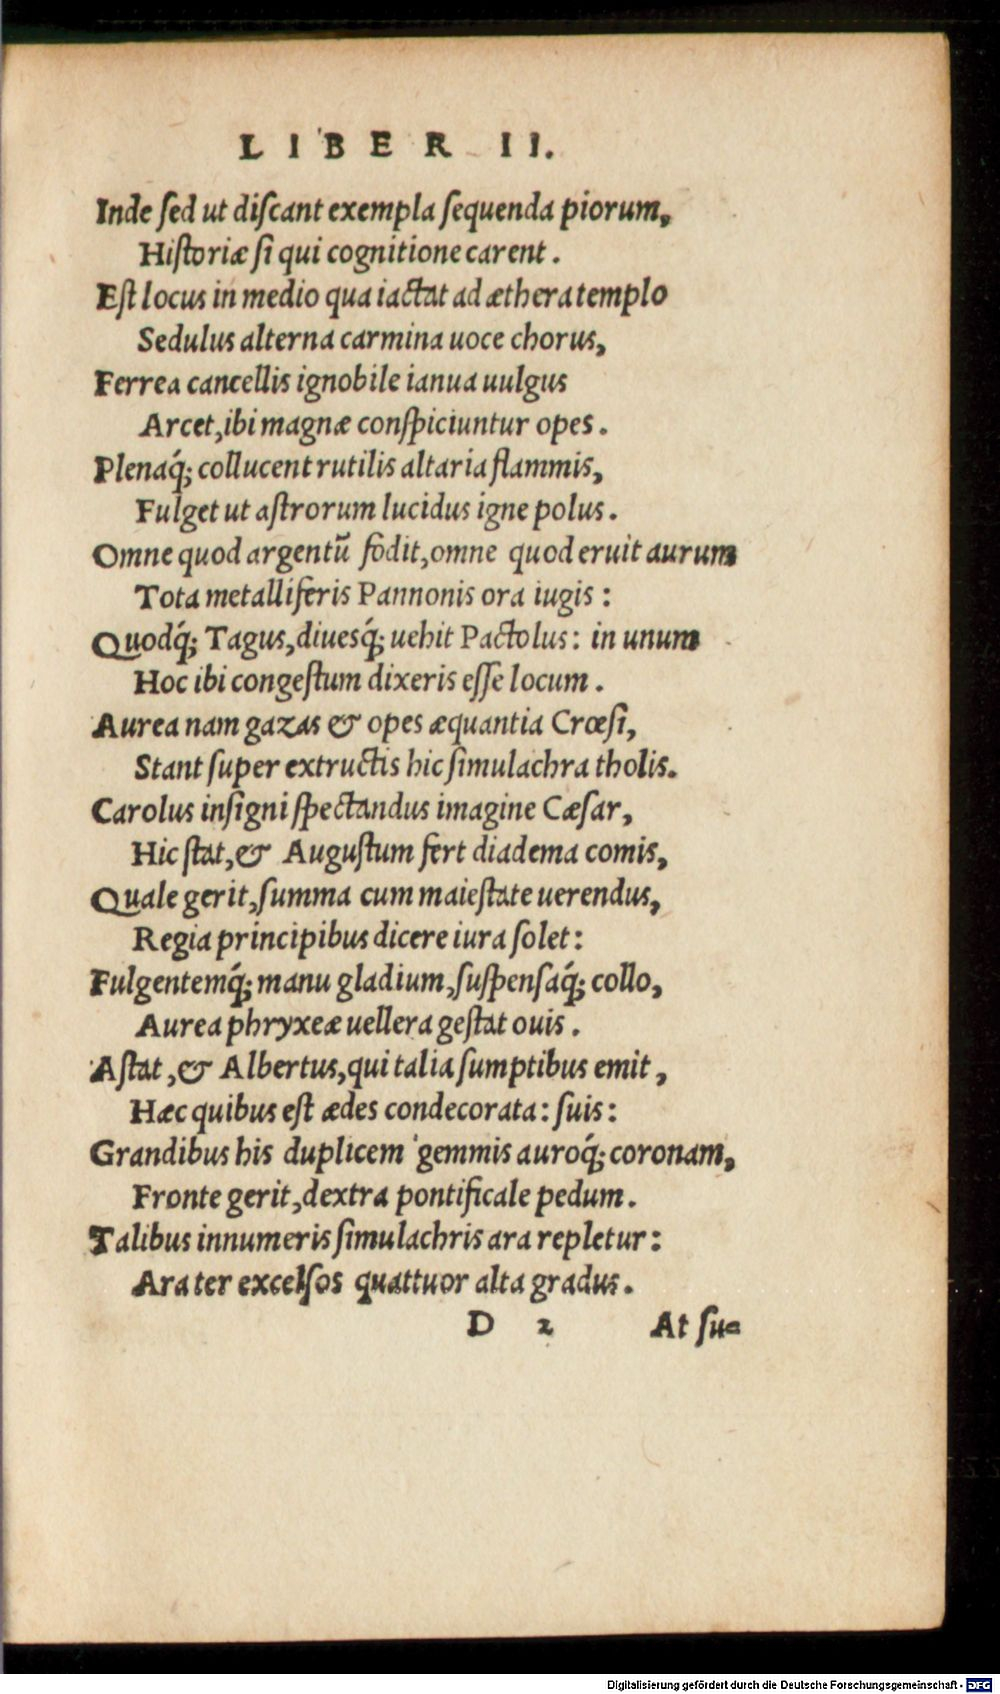 LIBER II.
Inde ſed ut diſcant exempla ſequenda piorum,
Hiſtoriæ ſi qui cognitione carent.
Eſt locus in medio qua iactat ad æthera templo
Sedulus alterna carmina uoce chorus,
Ferrea cancellis ignobile ianua uulgus
Arcet, ibi magnæ conſpiciuntur opes.
Plenaq́; collucent rutilis altaria flammis,
Fulget ut aſtrorum lucidus igne polus.
Omne quod argentũ fodit, omne quod eruit aurum
Tota metalliferis Pannonis ora iugis:
Quodq́; Tagus, diuesq́; uehit Pactolus: in unum
Hoc ibi congeſtum dixeris eſſe locum.
Aurea nam gazas & opes æquantia Crœſi,
Stant ſuper extructis hic ſimulachra tholis.
Carolus inſigni ſpectandus imagine Cæſar,
Hic ſtat, & Auguſtum fert diadema comis,
Quale gerit, ſumma cum maieſtate uerendus,
Regia principibus dicere iura ſolet:
Fulgentemq́; manu gladium, ſuſpenſaq́; collo,
Aurea phryxeæ uellera geſtat ouis.
Aſtat, & Albertus, qui talia ſumptibus emit,
Hæc quibus eſt ædes condecorata: ſuis:
Grandibus his duplicem gemmis auroq́; coronam,
Fronte gerit, dextra pontificale pedum.
Talibus innumeris ſimulachris ara repletur:
Ara ter excelſos quattuor alta gradus.
D 2 At ſu=
Digitalisierung gefördert durch die Deutsche Forschungsgemeinschaft - DFG